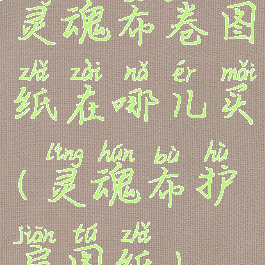 灵魂布卷图
zhǐ zài nǎ ér mǎi
纸在哪儿买
líng hún bù hù
(灵魂布护
jiān tú zhǐ
肩图纸)